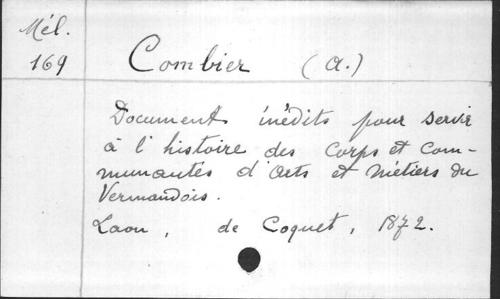 Mél.
169
Combier (A.)
Document inédits pour servir
à l'histoire des Corps et Com-
munautés d'Arts et Métiers du
Vermandois.
Laon, de Coquet, 1872.